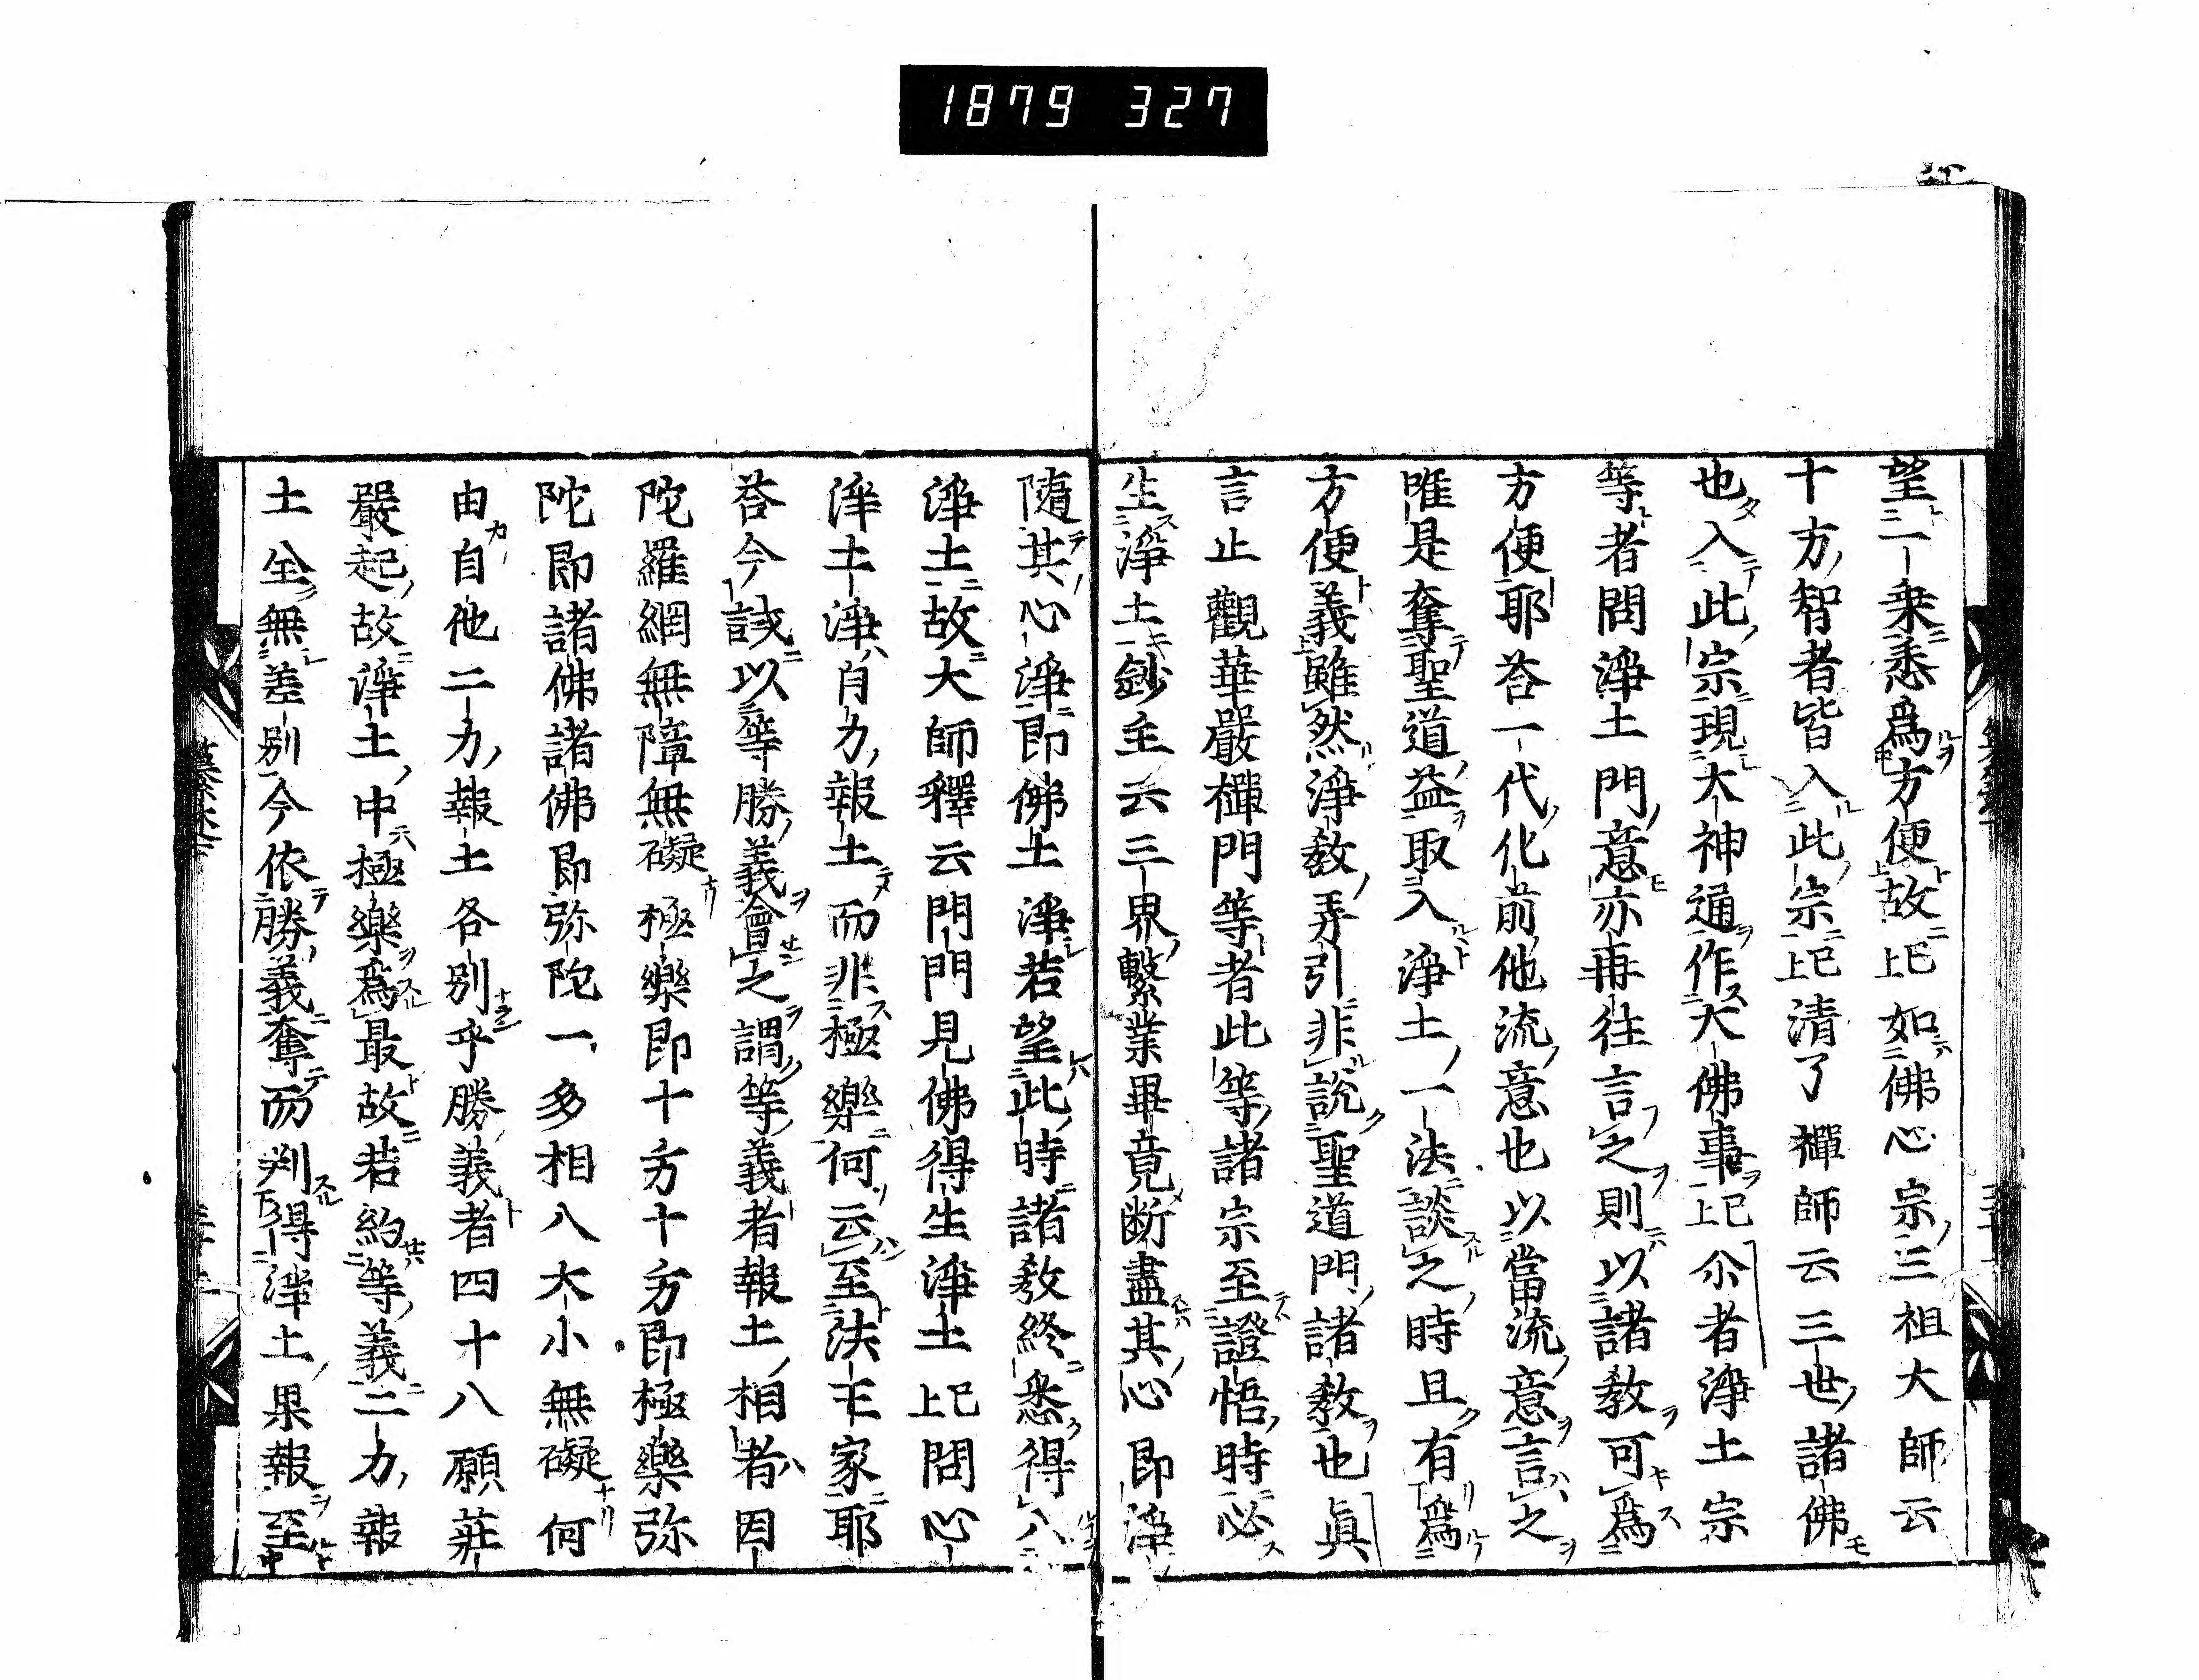 1879 327
望二乗悉爲方便故已上如佛心宗三祖大師云
十方智者皆入此宗已上清了禪師云三世諸佛
也入此宗現大神通作大佛事已上尒者淨土宗
等者問淨土門意亦再往言之則以諸教可爲
方便耶荅一代化前他流意也以當流意言之
唯是奪聖道益取入淨土一法談之時且有爲
方便義雖然淨教弄引非説聖道門諸教也眞
言止觀華嚴禪門等者此等諸宗至證悟時必
生淨土鈔主云三界繫業畢竟断盡其心即淨
隨其心淨即佛土淨若望此時諸教終悉得八
淨土故大師釋云門門見佛得生淨土已上問心
淨土淨肖力報土而非極樂何云至法王家耶
荅今該以等勝義會之謂等義者報土相者因
陀羅網無障無礙極樂即十方十方即極樂弥
陀即諸佛諸佛即弥陀一多相八大小無礙何
由自他二力報土各別乎勝義者四十八願莊
嚴起故淨土中極樂爲最故若約等義二力報
土全無差別今依勝義奪而判得淨土果報至